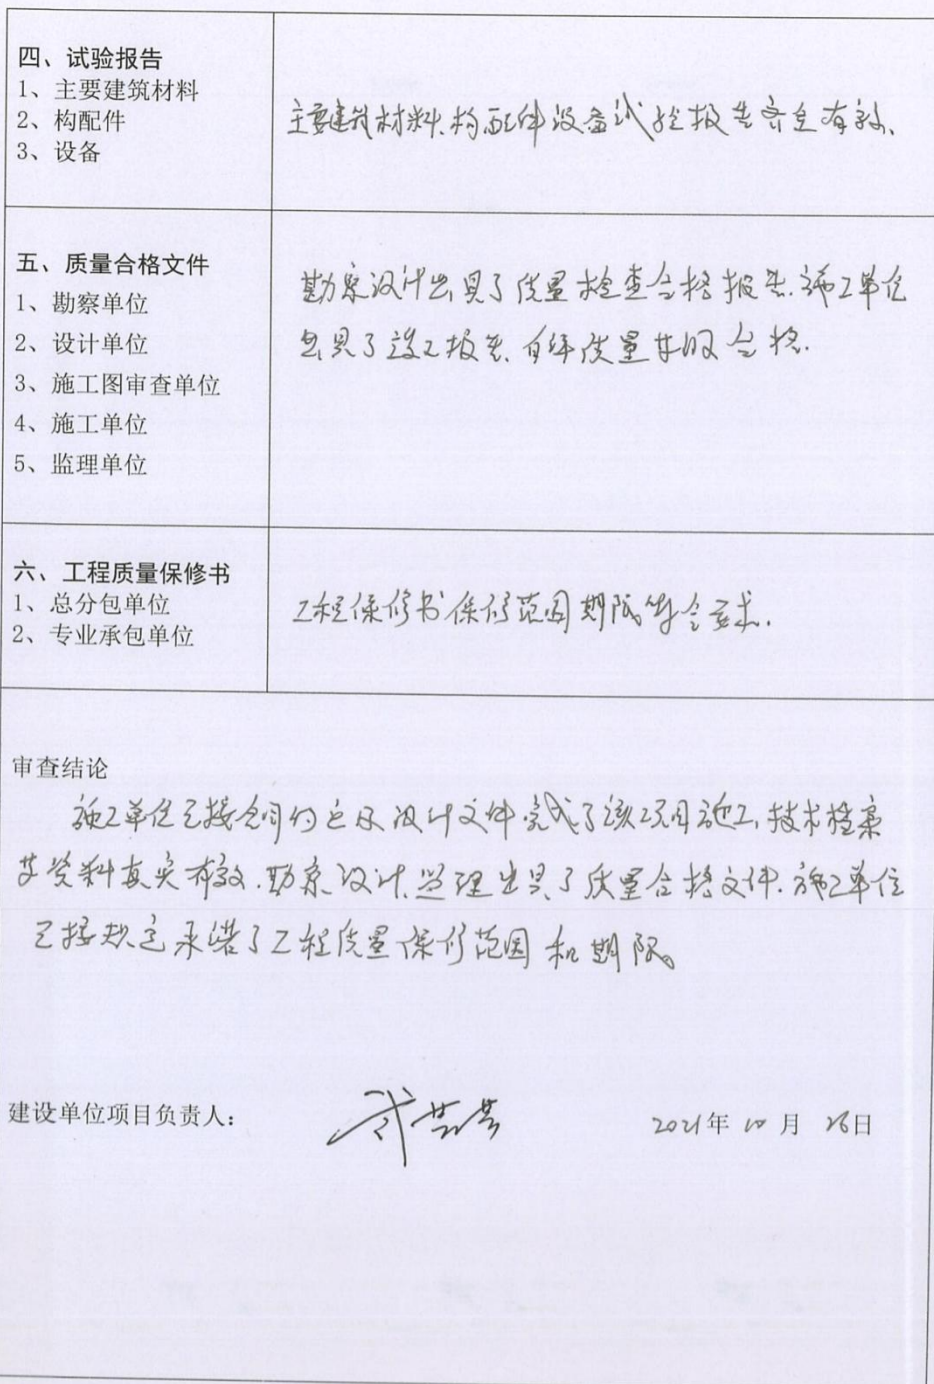 四、试验报告
1、主要建筑材料
2、构配件
3、设备
主要建筑材料、构配件设备试验报告齐全有效、
五、质量合格文件
1、勘察单位
2、设计单位
3、施工图审查单位
4、施工单位
5、监理单位
勘察设计出具了质量检查合格报告、施工单位
出具了竣工报告、 质量 合格.
六、工程质量保修书
1、总分包单位
2、专业承包单位
工程保修书保修范围期限符合要求.
审查结论
施工单位已按合同约定及设计文件完成了该项目施工,技术档案
资料真实有效.勘察设计、监理出具了质量合格文件.施工单位
已按规定承诺了工程质量保修范围和期限。
建设单位项目负责人:
2021年 10 月 26日